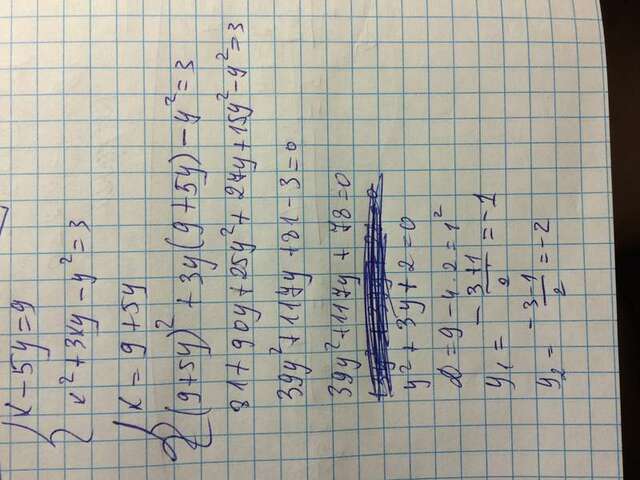 x - 5y = 9
x² + 3xy - y² = 3
x = 9 + 5y
(9+5y)² + 3y(9+5y) - y² = 3
81 + 90y + 25y² + 27y + 15y² - y² = 3
39y² + 117y + 81 - 3 = 0
39y² + 117y + 78 = 0
y² + 3y + 2 = 0
D = 9 - 4·2 = 1²
y₁ = (-3+1)/2 = -1
y₂ = (-3-1)/2 = -2